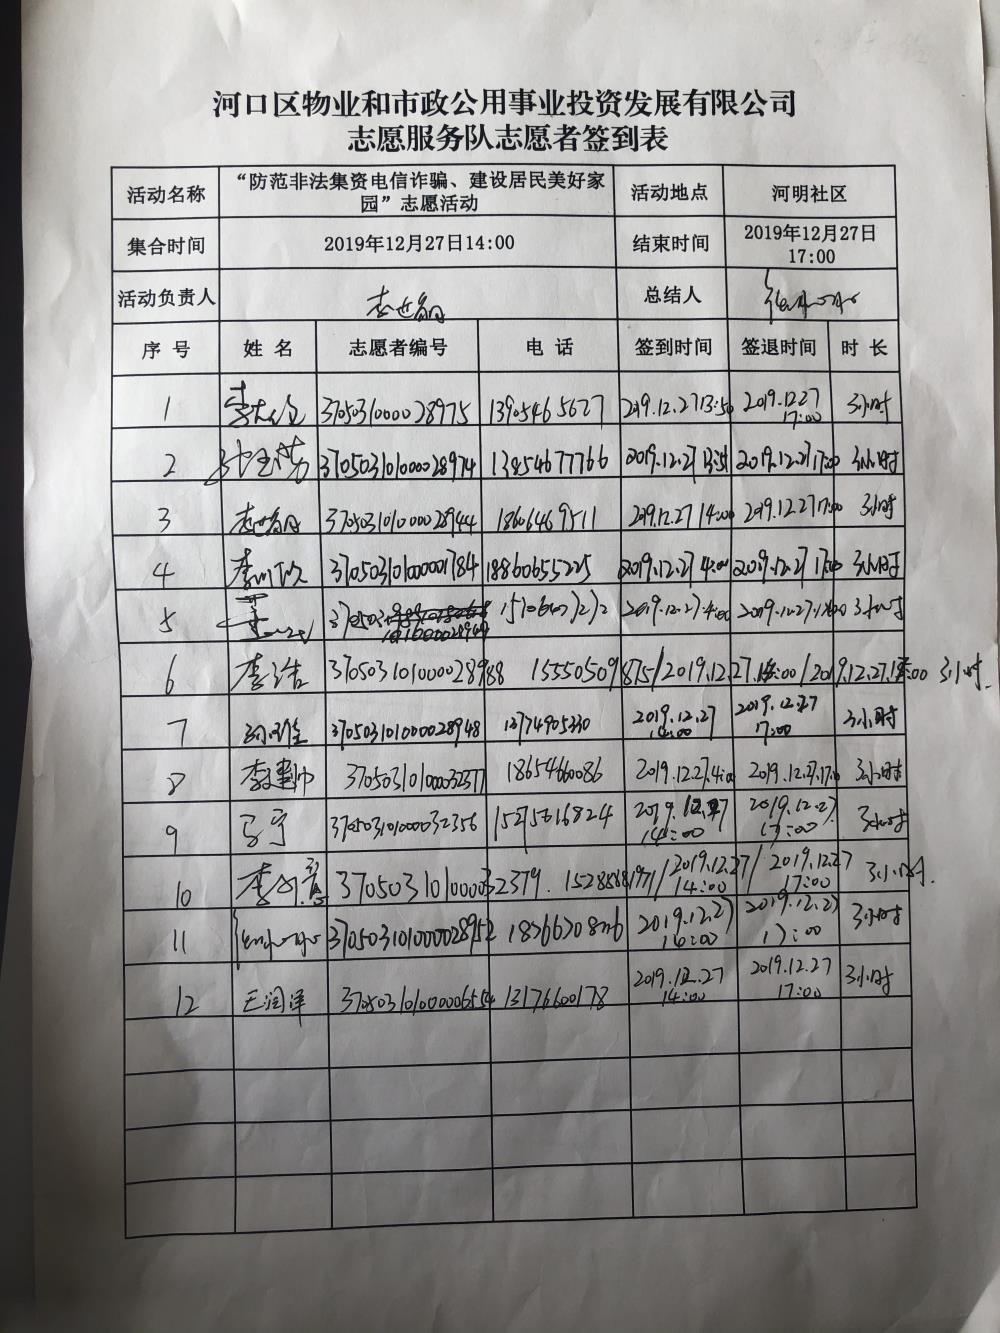 河口区物业和市政公用事业投资发展有限公司
志愿服务队志愿者签到表
活动名称 “防范非法集资电信诈骗、建设居民美好家园”志愿活动 活动地点 河明社区
集合时间 2019年12月27日14:00 结束时间 2019年12月27日 17:00
活动负责人 总结人
序号 姓名 志愿者编号 电话 签到时间 签退时间 时长
1 37050310000028975 13905465627 2019.12.27 13:50 2019.12.27 17:00 3小时
2 370503101000028974 13854677766 2019.12.27 13:51 2019.12.27 17:00 3小时
3 370503101000028944 18606469511 2019.12.27 14:00 2019.12.27 17:00 3小时
4 370503101000001784 18860655225 2019.12.27 14:00 2019.12.27 17:00 3小时
5 2019.12.27 14:00 2019.12.27 17:00 3小时
6 李浩 370503101000028988 15550509875/2019.12.27.14:00/2019.12.27.17:00 3小时.
7 370503101000028948 2019.12.27 14:00 2019.12.27 17:00 3小时
8 李建帅 370503101000032377 18654660086 2019.12.27.14:00 2019.12.27.17:00 3小时
9 马宁 370503101000032356 15275616824 2019.12.27 14:00 2019.12.27 17:00 3小时
10 370503101000032379. 15288881971/2019.12.27 14:00/2019.12.27 17:00 3小时.
11 370503101000028952 2019.12.27 14:00 2019.12.27 17:00 3小时
12 王润泽 370503101000006554 13176600178 2019.12.27 14:00 2019.12.27 17:00 3小时